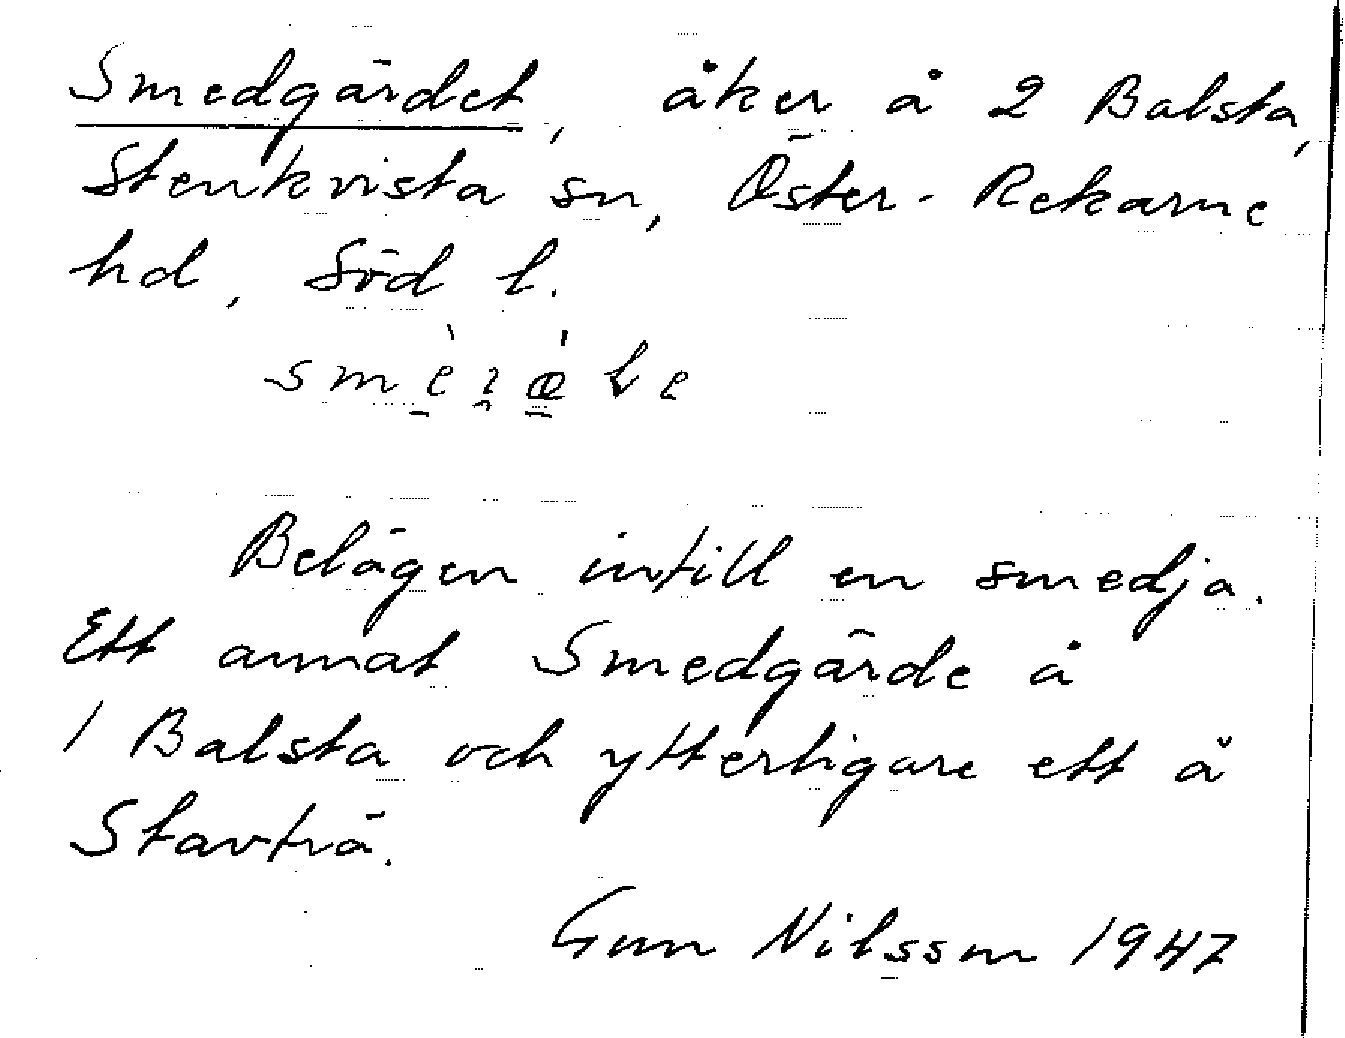 Smedgärdet, åker å 2 Balsta,
Stenkvista sn, Öster-Rekarne
hd, Söd l.
Belägen intill en smedja.
Ett annat Smedgärde å
1 Balsta och ytterligare ett å
Stavträ.
Gun Nilsson 1947